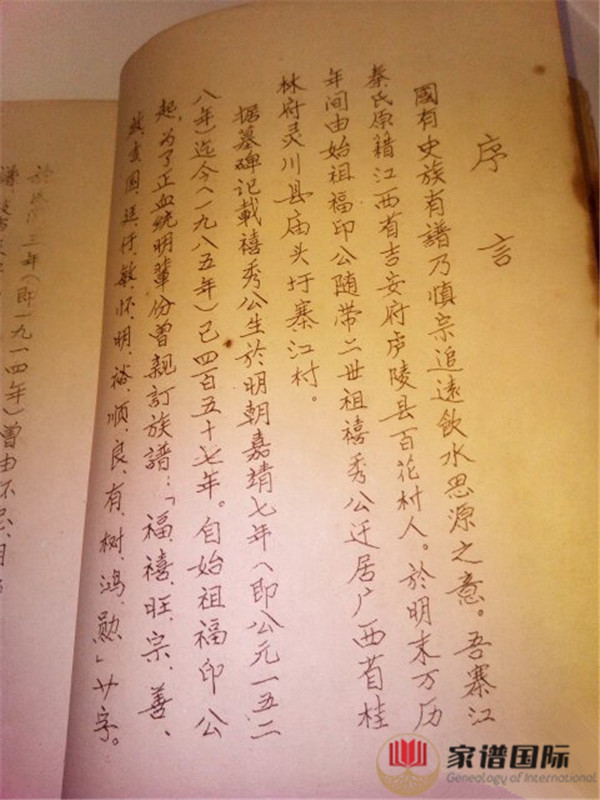 序言
國有史族有譜乃慎宗追遠飲水思源之意。吾寨江
秦氏原籍江西省吉安府庐陵县百花村人。於明末万历
年间由始祖福印公随带二世祖禧秀公迁居广西省桂
林府灵川县庙头圩寨江村。
据墓碑记載禧秀公生於明朝嘉靖七年(即公元一五二
八年)迄今(一九八五年)已四百五十七年。自始祖福印公
起,为了正血統明輩份曾親訂族譜:「福、禧、旺、宗、善、
国、廷、仔、敏、怀、明、裕、顺、良、有、树、鸿、勋」廿字。
三年(即一九一四年)曾由
家谱国际
Genealogy of International